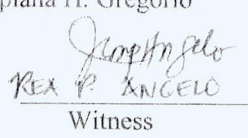 H. Gregorio
REX P. ANGELO
Witness